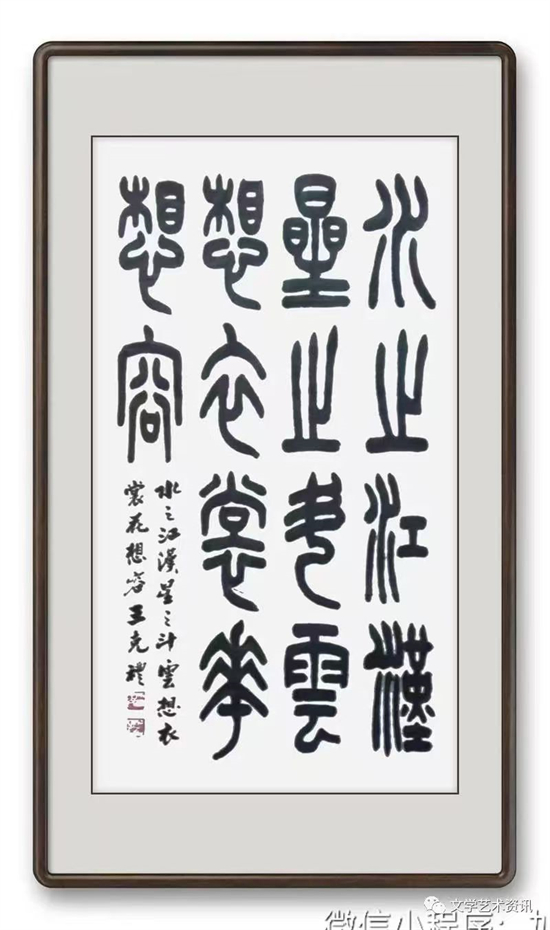 水之江漢
星之斗雲
想衣裳華
想容
水之江漢星之斗雲想衣
裳花想容王克禮
文学艺术资讯
微信小程序: